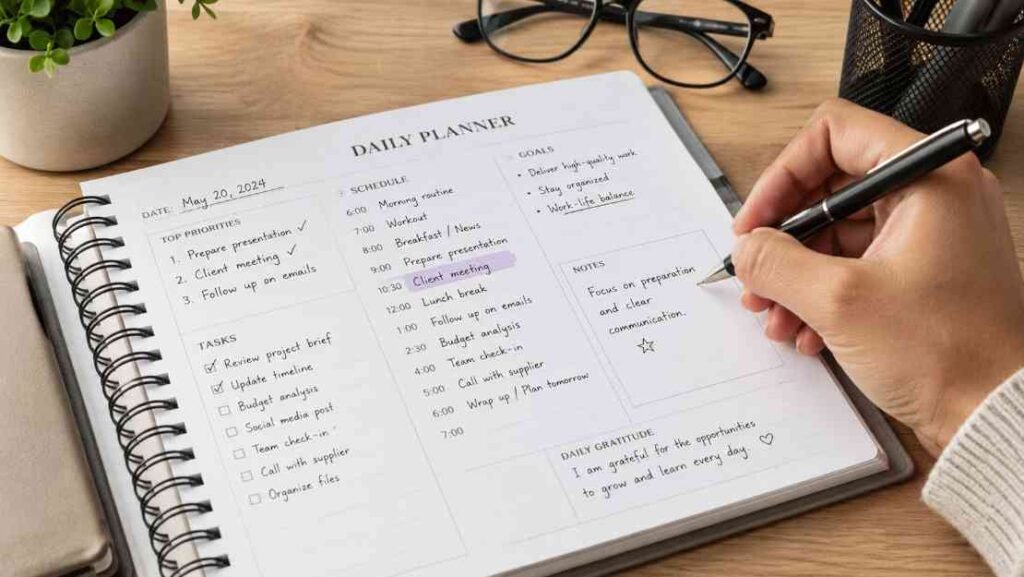 DAILY PLANNER
DATE: May 20, 2024
TOP PRIORITIES
1. Prepare presentation ✓
2. Client meeting ✓
3. Follow up on emails
TASKS
☑ Review project brief
☑ Update timeline
☐ Budget analysis
☐ Social media post
☐ Team check-in
☐ Call with supplier
☐ Organize files
SCHEDULE
6:00 Morning routine
7:00 Workout
8:00 Breakfast / News
9:00 Prepare presentation
10:30 Client meeting
12:00 Lunch break
1:00 Follow up on emails
2:30 Budget analysis
4:00 Team check-in
5:00 Call with supplier
6:00 Wrap up / Plan tomorrow
7:00
GOALS
• Deliver high-quality work
• Stay organized
• Work-life balance
NOTES
Focus on preparation
and clear
communication.
☆
DAILY GRATITUDE
I am grateful for the opportunities
to grow and learn every day. ♡